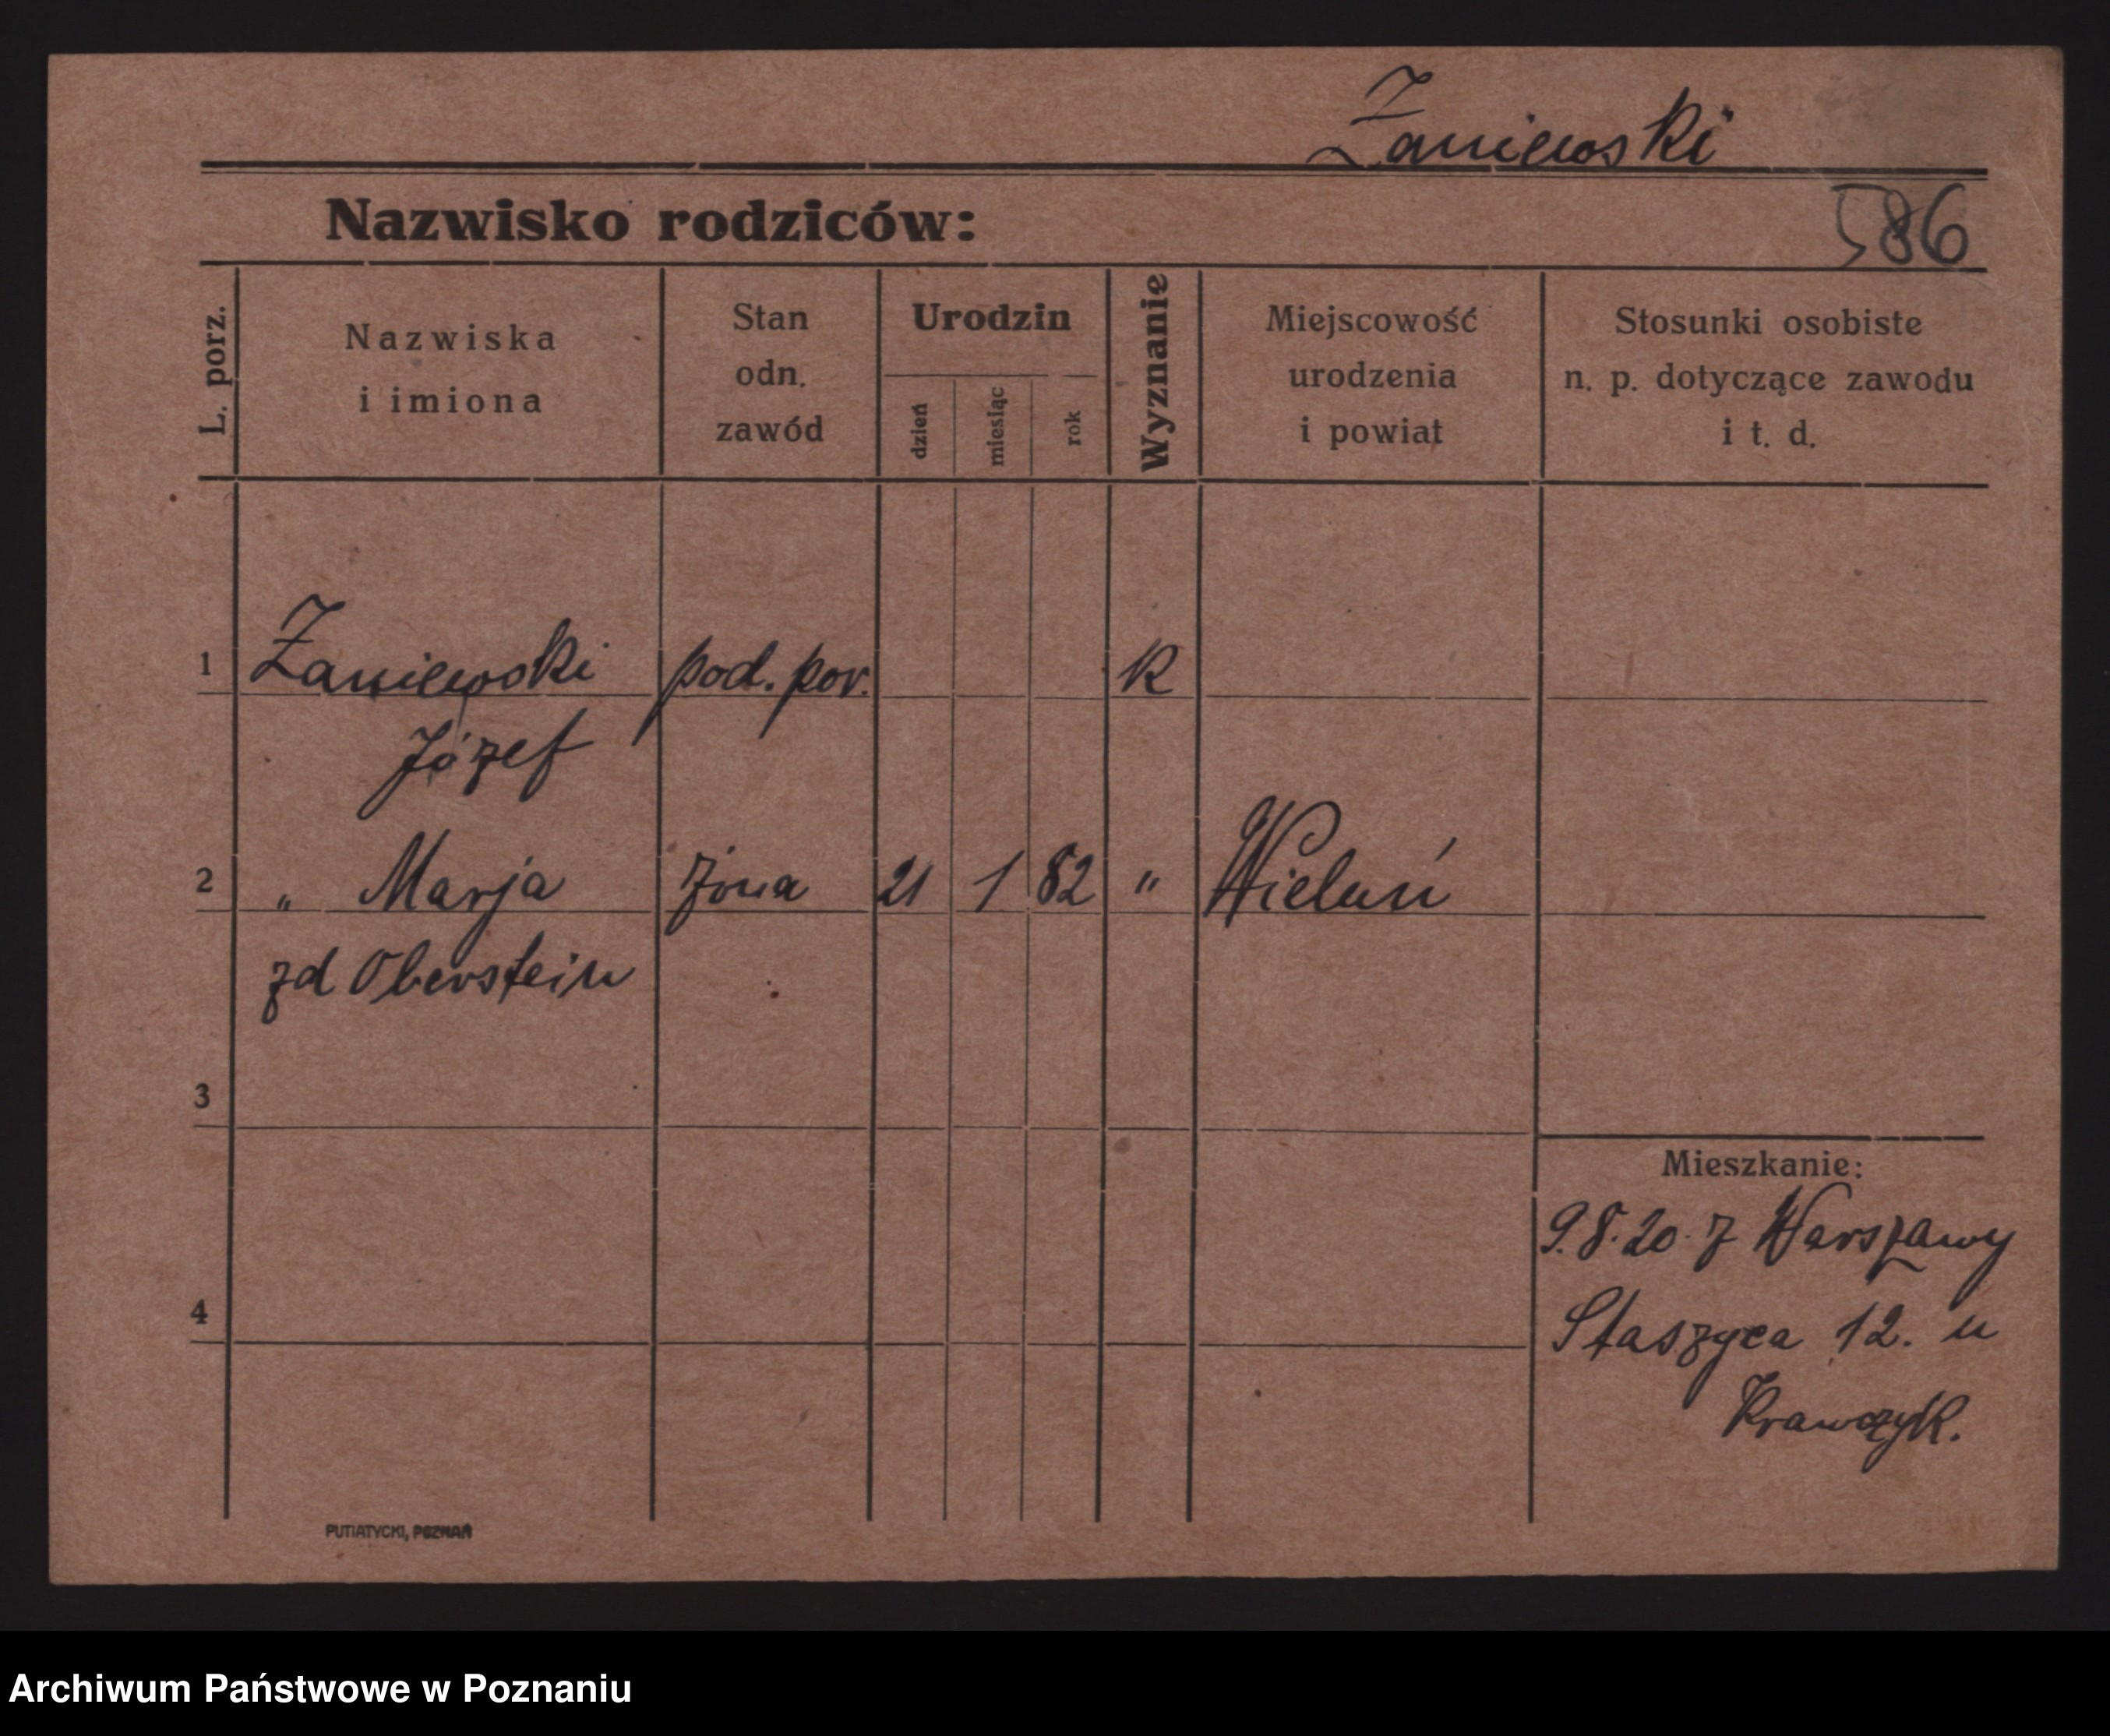 Zaniewski
Nazwisko rodziców:
586
L. porz.
Nazwiska
i imiona
Stan
odn.
zawód
Urodzin
dzień
miesiąc
rok
Wyznanie
Miejscowość
urodzenia
i powiat
Stosunki osobiste
n. p. dotyczące zawodu
i t. d.
1 Zaniewski pod. por. K
Józef
2 „ Marja żona 21 1 82 „ Wieluń
zd Oberstein
3
Mieszkanie:
9.8.20. z Warszawy
4
Staszyca 12. u
Krawczyk.
PUTIATYCKI, POZNAŃ
Archiwum Państwowe w Poznaniu